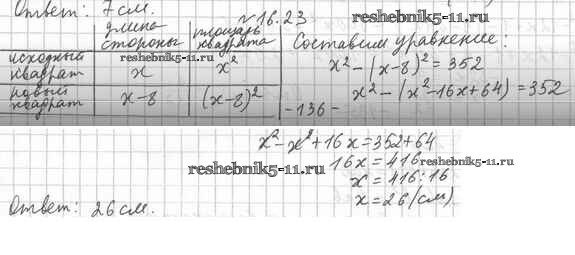 Ответ: 7 см.
№ 16.23
reshebnik5-11.ru
длина стороны
площадь квадрата
Составим уравнение:
исходный квадрат
reshebnik5-11.ru
x
x²
x² - (x-8)² = 352
новый квадрат
x-8
(x-8)²
x² - (x² - 16x + 64) = 352
-136-
x² - x² + 16x = 352 + 64
16x = 416
reshebnik5-11.ru
reshebnik5-11.ru
x = 416 : 16
x = 26 (см)
Ответ: 26 см.